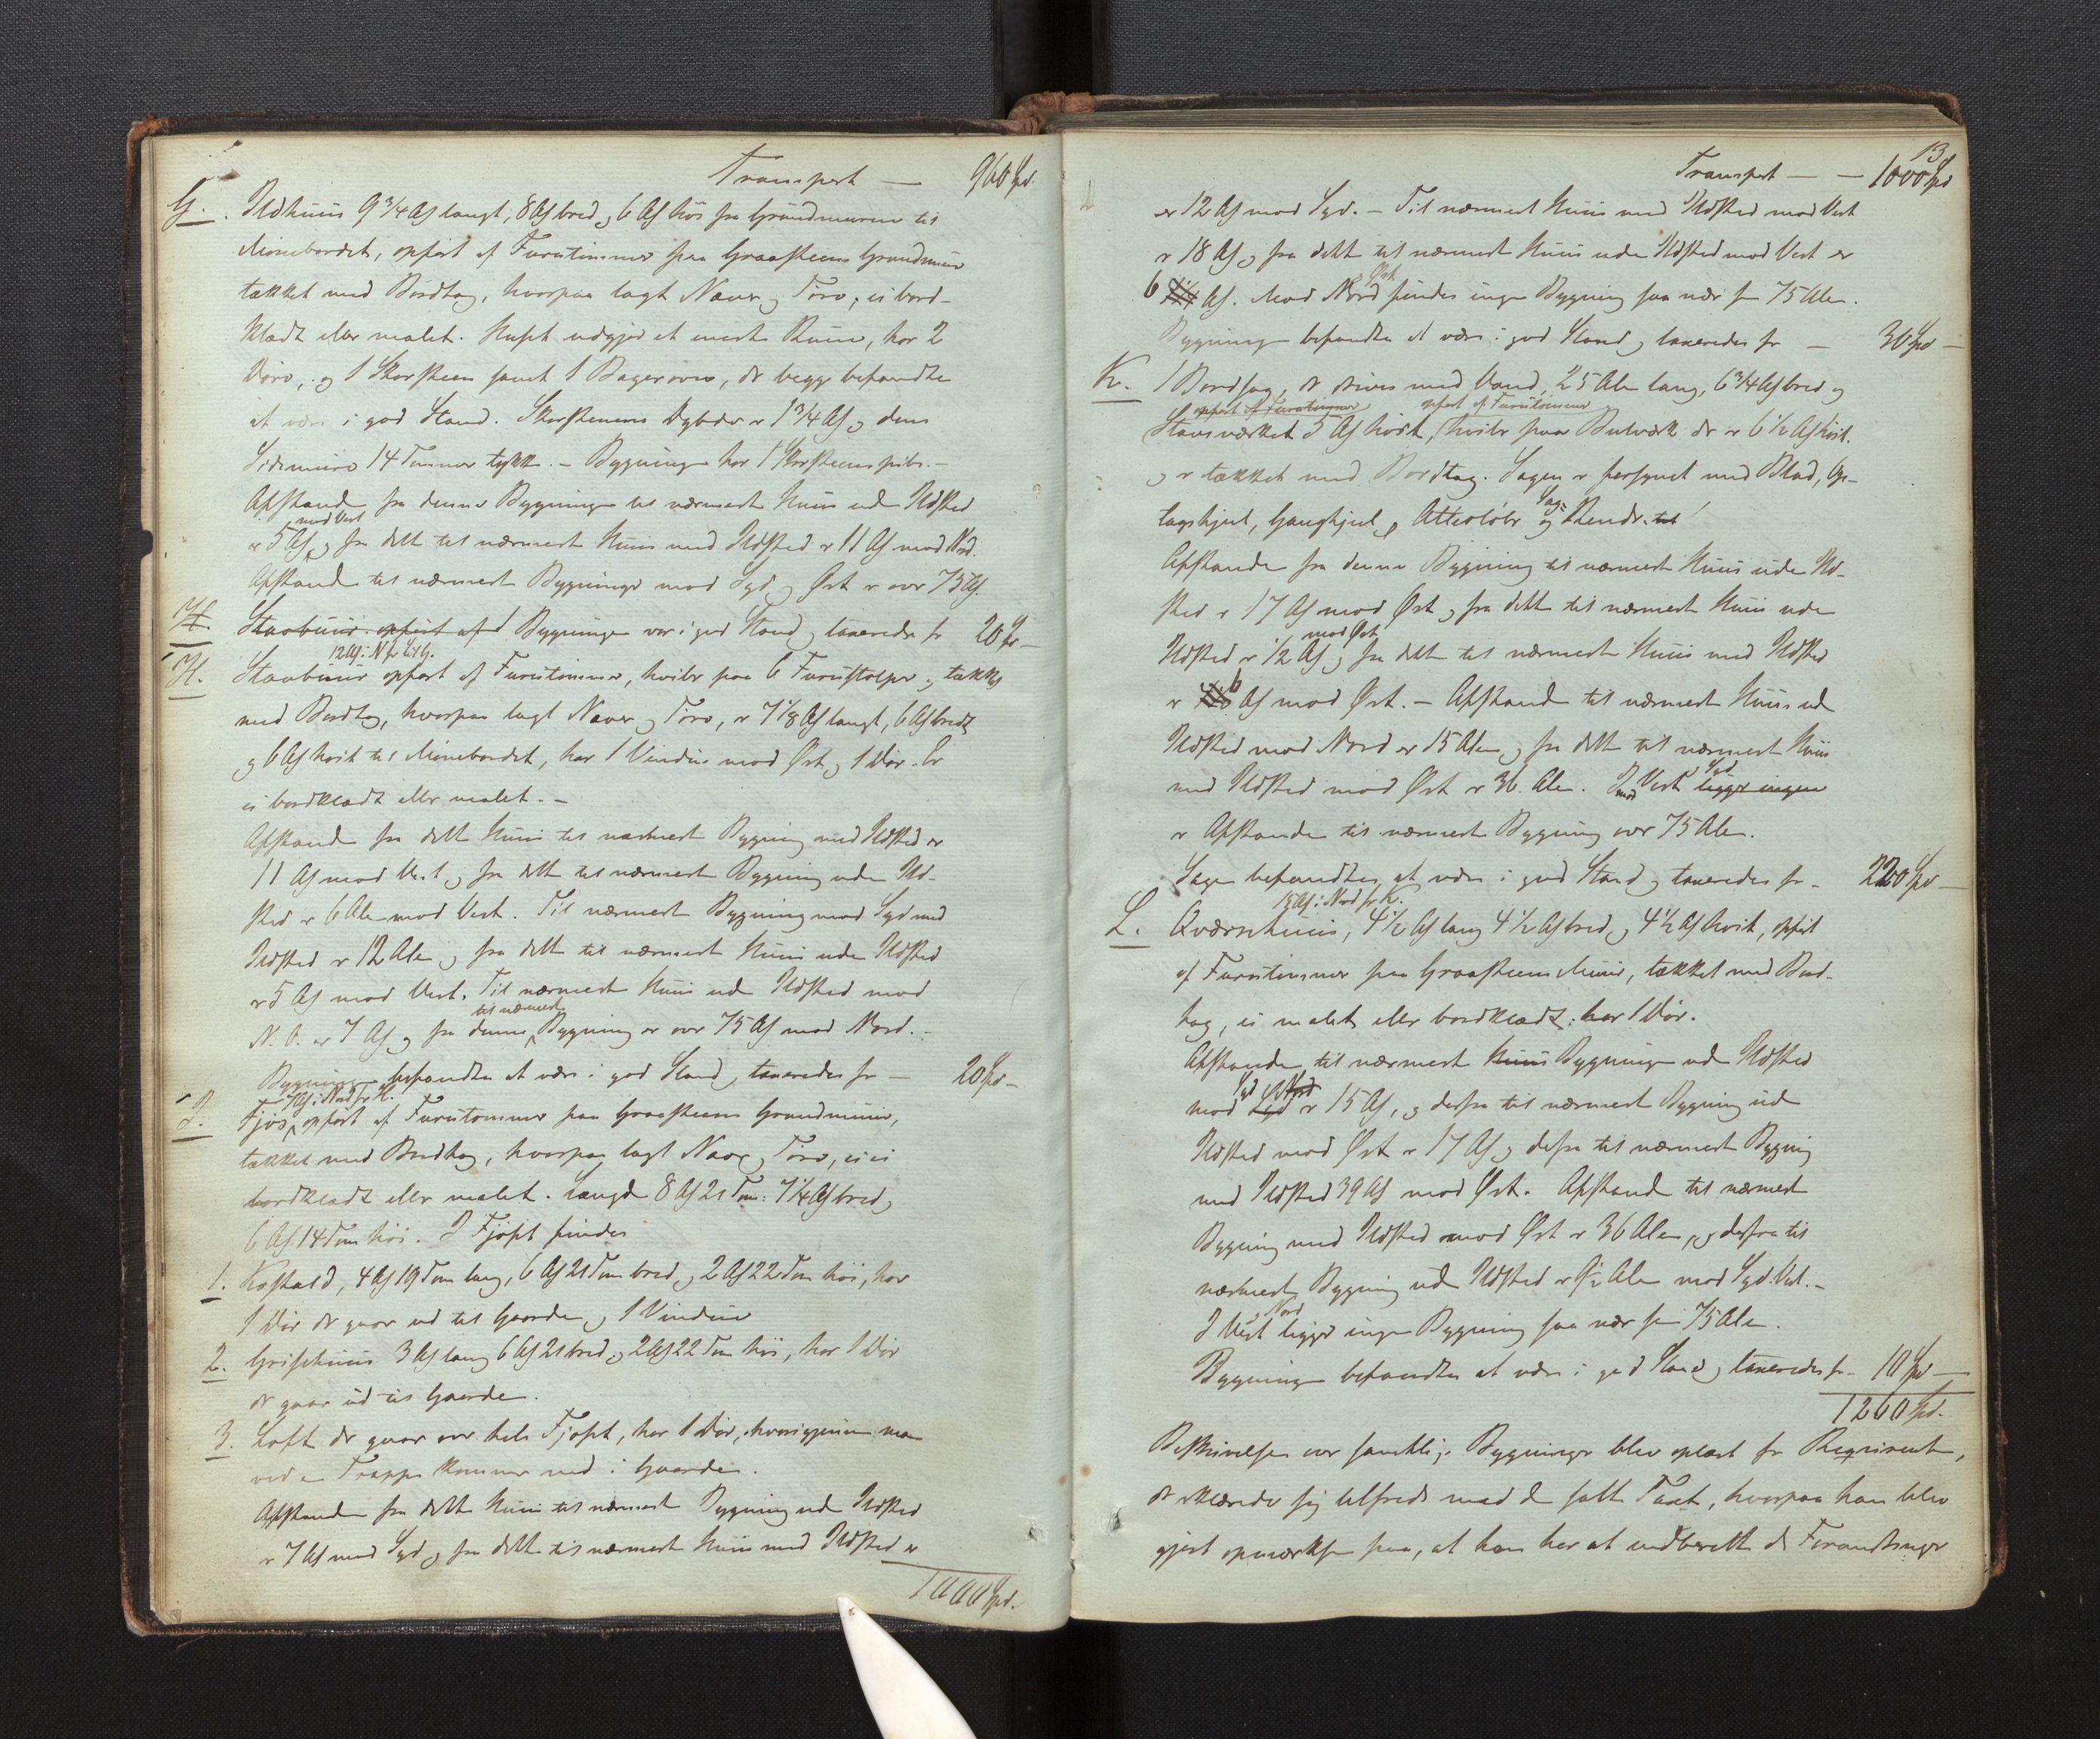 Transport — 960 Spd.
G. Ildhuus 9 3/4 Al langt, 8 Al bred og 6 Al höi fra Grundmuren til
Mönebordet, opfört af Furutimmer paa Graasteens Grundmuur
tækket med Bordtag, hvorpaa lagt Næver og Törv, ei bord-
klædt eller malet. Huset udgjör et eneste Rum, har 2
Döre, og 1 Skorsteen samt 1 Bagerovn, der begge befandtes
at være i god Stand. Skorstenens Dybde er 1 3/4 Al og dens
Sidemure 14 Tommer tykke. — Bygningen har 1 Skorsteenspibe. —
Afstanden fra denne Bygning til nærmeste Huus uden Ildsted
mod Vest
er 5 Al og fra dette til nærmeste Huus med Ildsted er 11 Al mod Nord.
Afstanden til nærmeste Bygninger mod Syd og Öst er over 75 Al.
H. Stabuur opfört af Bygningen var i god Stand og taxeredes for 20 Sp —
12 Al i N for Lit G.
H. Stabuur opfört af Furutimmer, hviler paa 6 Furustolper og tækket
med Bordtag, hvorpaa lagt Næver og Törv, er 7 1/8 Al langt, 6 Al bredt
og 6 Al höit til Mönebordet, har 1 Vindue mod Öst og 1 Dör. Er
ei bordklædt eller malet. —
Afstanden fra dette Huus til nærmeste Bygning med Ildsted er
11 Al mod Vest og fra dette til nærmeste Bygning uden Ild-
sted er 6 Alen mod Vest. Til nærmeste Bygning mod Syd med
Ildsted er 12 Alen og fra dette til nærmeste Huus uden Ildsted
er 5 Al mod Vest. Til nærmeste Huus uden Ildsted mod
til nærmeste
N.O. er 7 Al og fra denne Bygning er over 75 Al mod Nord. —
Bygningen befandtes at være i god Stand og taxeredes for — 20 Spd —
7 Al i Nord for H.
J. Fjös, opfört af Furutømmer paa Graasteens Grundmuur,
tækket med Bordtag, hvorpaa lagt Næver og Törv, er ei
bordklædt eller malet. Længde 8 Al 21 Tom: 7 1/4 Al bred og
6 Al 14 Tom höi. I Fjöset findes
1. Kostald, 4 Al 19 Tom lang, 6 Al 21 Tom bred og 2 Al 22 Tom höi, har
1 Dör der gaar ud til Gaarden og 1 Vindue
2. Grisehuus 3 Al lang 6 Al 21 bred og 2 Al 22 Tom höi, har 1 Dör
der gaar ud til Gaarden.
3. Loft der gaar over hele Fjöset, har 1 Dör, hvorigjennem man
ved en Trappe kommer ned i Gaarden.
Afstanden fra dette Huus til nærmeste Bygning uden Ildsted
er 7 Al mod Syd og fra dette til nærmeste Huus med Ildsted er
1000 Spd.
13
Transport — — 1000 Spd
er 12 Al mod Syd. — Til nærmeste Huus med Ildsted mod Vest
er 18 Al og fra dette til nærmeste Huus uden Ildsted mod Vest er
og Öst
6 Al. Mod Nord findes ingen Bygning saa nær som 75 Alen.
Bygningen befandtes at være i god Stand og taxeredes for — 30 Spd —
K. 1 Bordsag, der drives med Vand, 25 Alen lang, 6 3/4 Al bred og
opfört af Furutimmer opfört af Furutömmer
Stavsværket 5 Al höit, hviler paa Bulværk der er 6 1/2 Al höit.
og er tækket med Bordtag. Sagen er forsynet med Blad, Op-
Sag-
tagshjul, Ganghjul, Atterlöbe og Rende. til
Afstanden fra denne Bygning til nærmeste Huus uden Ild-
sted er 17 Al mod Öst og fra dette til nærmeste Huus uden
mod Öst
Ildsted er 1/2 Al og fra dette til nærmeste Huus med Ildsted
er 6 Al mod Öst. — Afstanden til nærmeste Huus uden
Ildsted mod Nord er 15 Alen og fra dette til nærmeste Huus
Syd
med Ildsted mod Öst er 36 Alen. I mod Vest ligger ingen
er Afstanden til nærmeste Bygning over 75 Alen.
Sagen befandtes at være i god Stand og taxeredes for — 220 Spd —
15 Al i Nord for K.
L. Qværnhuus, 4 1/2 Al lang 4 1/2 Al bred, og 4 1/2 Al höit, opfört
af Furutimmer paa Graasteens Muur, tækket med Bord-
tag, ei malet eller bordklædt: har 1 Dör.
Afstanden til nærmeste Huus Bygning uden Ildsted
mod Syd er 15 Al, og derfra til nærmeste Bygning uden
Ildsted mod Öst er 17 Al og derfra til nærmeste Bygning
med Ildsted 39 Al mod Öst. Afstanden til nærmeste
Bygning med Ildsted mod Öst er 36 Alen, og derfra til
nærmeste Bygning uden Ildsted er 9 1/2 Alen mod Syd Vest. —
og Nord
I Vest ligger ingen Bygning saa nær som 75 Alen.
Bygningen befandtes at være i god Stand og taxeredes for — 10 Spd —
1260 Spd.
Beskrivelsen over samtlige Bygninger blev oplæst for Reqvirenten,
der erklærede sig tilfreds med den satte Taxt, hvorpaa han blev
gjort opmærksom paa, at han har at indberette de Forandringer